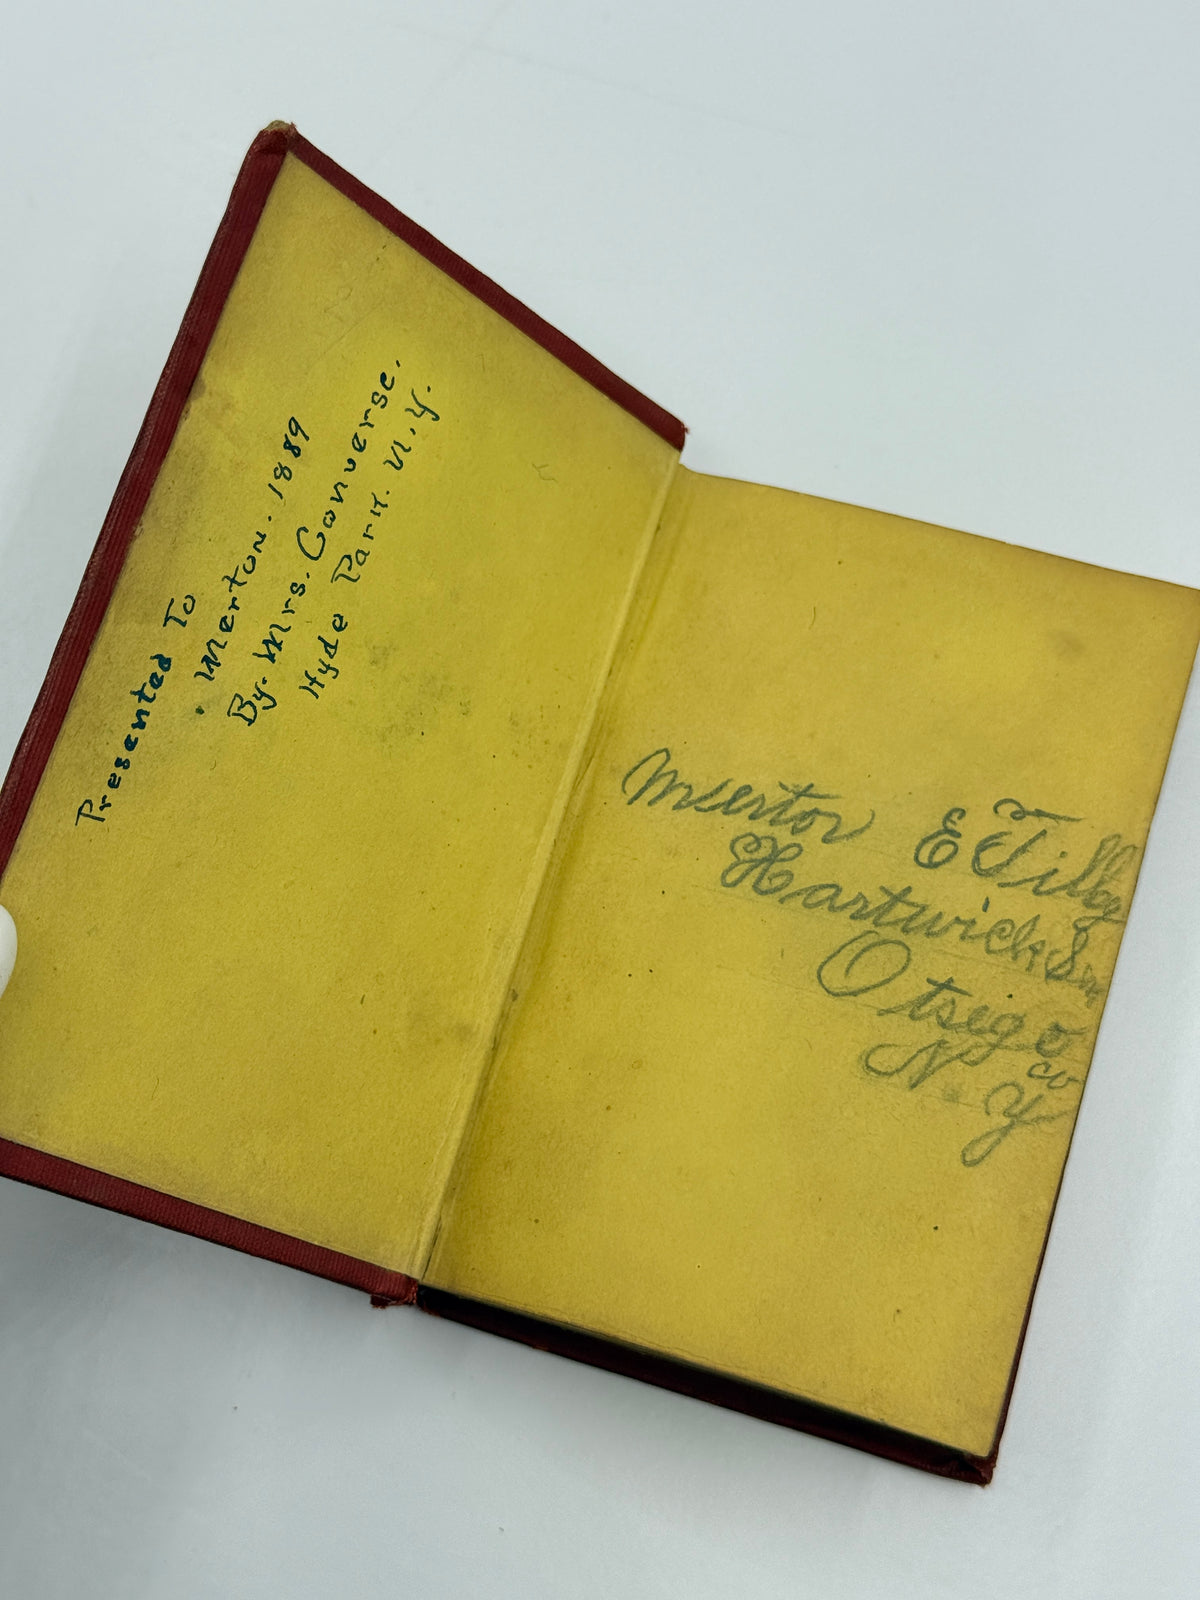 Presented To
Merton. 1889
By. Mrs. Converse.
Hyde Park. N.Y.
Merton E Tilley
Hartwick Sm
Otsego
co
N. Y